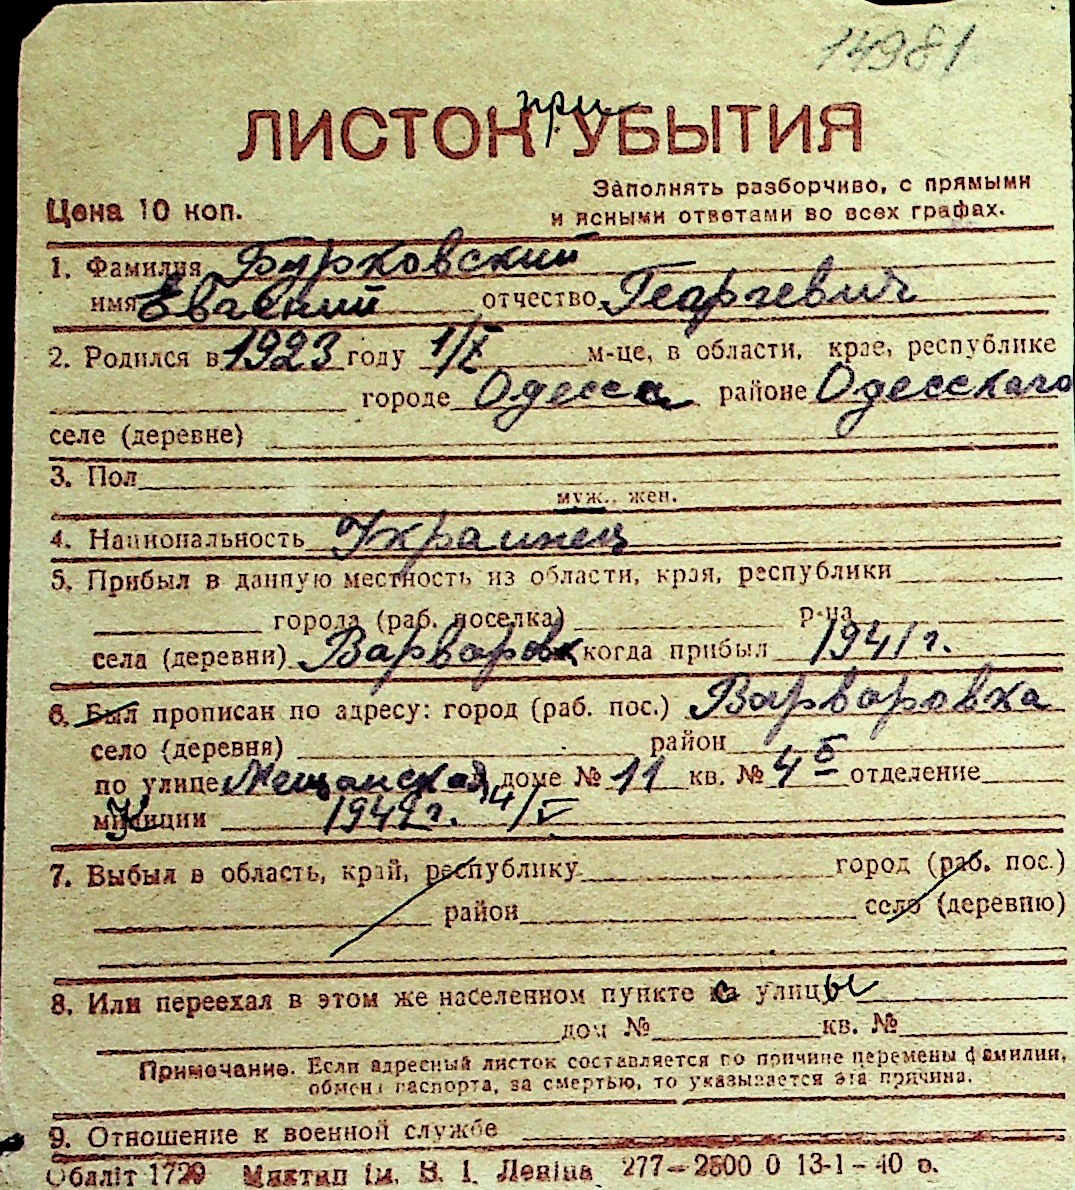 14981
при
ЛИСТОК УБЫТИЯ
Заполнять разборчиво, с прямыми
Цена 10 коп. и ясными ответами во всех графах.
1. Фамилия Бурковский
имя Евгений отчество Георгевич
2. Родился в 1923 году 1/X м-це, в области, крае, республике
городе Одесса районе Одесскаго
селе (деревне)
3. Пол
муж., жен.
4. Национальность Украинец
5. Прибыл в данную местность из области, края, республики
города (раб. поселка) р-на
села (деревни) Варваровк когда прибыл 1941 г.
6. Был прописан по адресу: город (раб. пос.) Варваровка
село (деревня) район
по улице Мещанская доме № 11 кв. № 4 б отделение
милиции 1942 г. 14/V
7. Выбыл в область, край, республику город (раб. пос.)
район село (деревню)
8. Или переехал в этом же населенном пункте с улицы
дом № кв. №
Примечание. Если адресный листок составляется по причине перемены фамилии,
обмена паспорта, за смертью, то указывается эта причина.
9. Отношение к военной службе
Обліт 1729 Миктип ім. В. І. Леніна 277—2500 0 13-1-40 р.